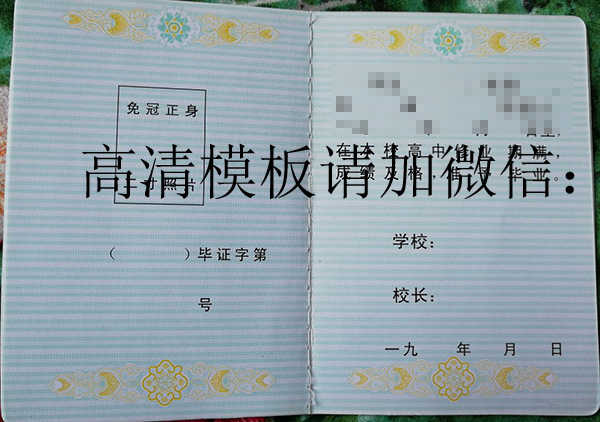 免冠正身
二寸照片
（ ）毕证字第
号
在本校高中修业期满，
成绩及格，准予毕业。
学校：
校长：
一九 年 月 日
高清模板请加微信：